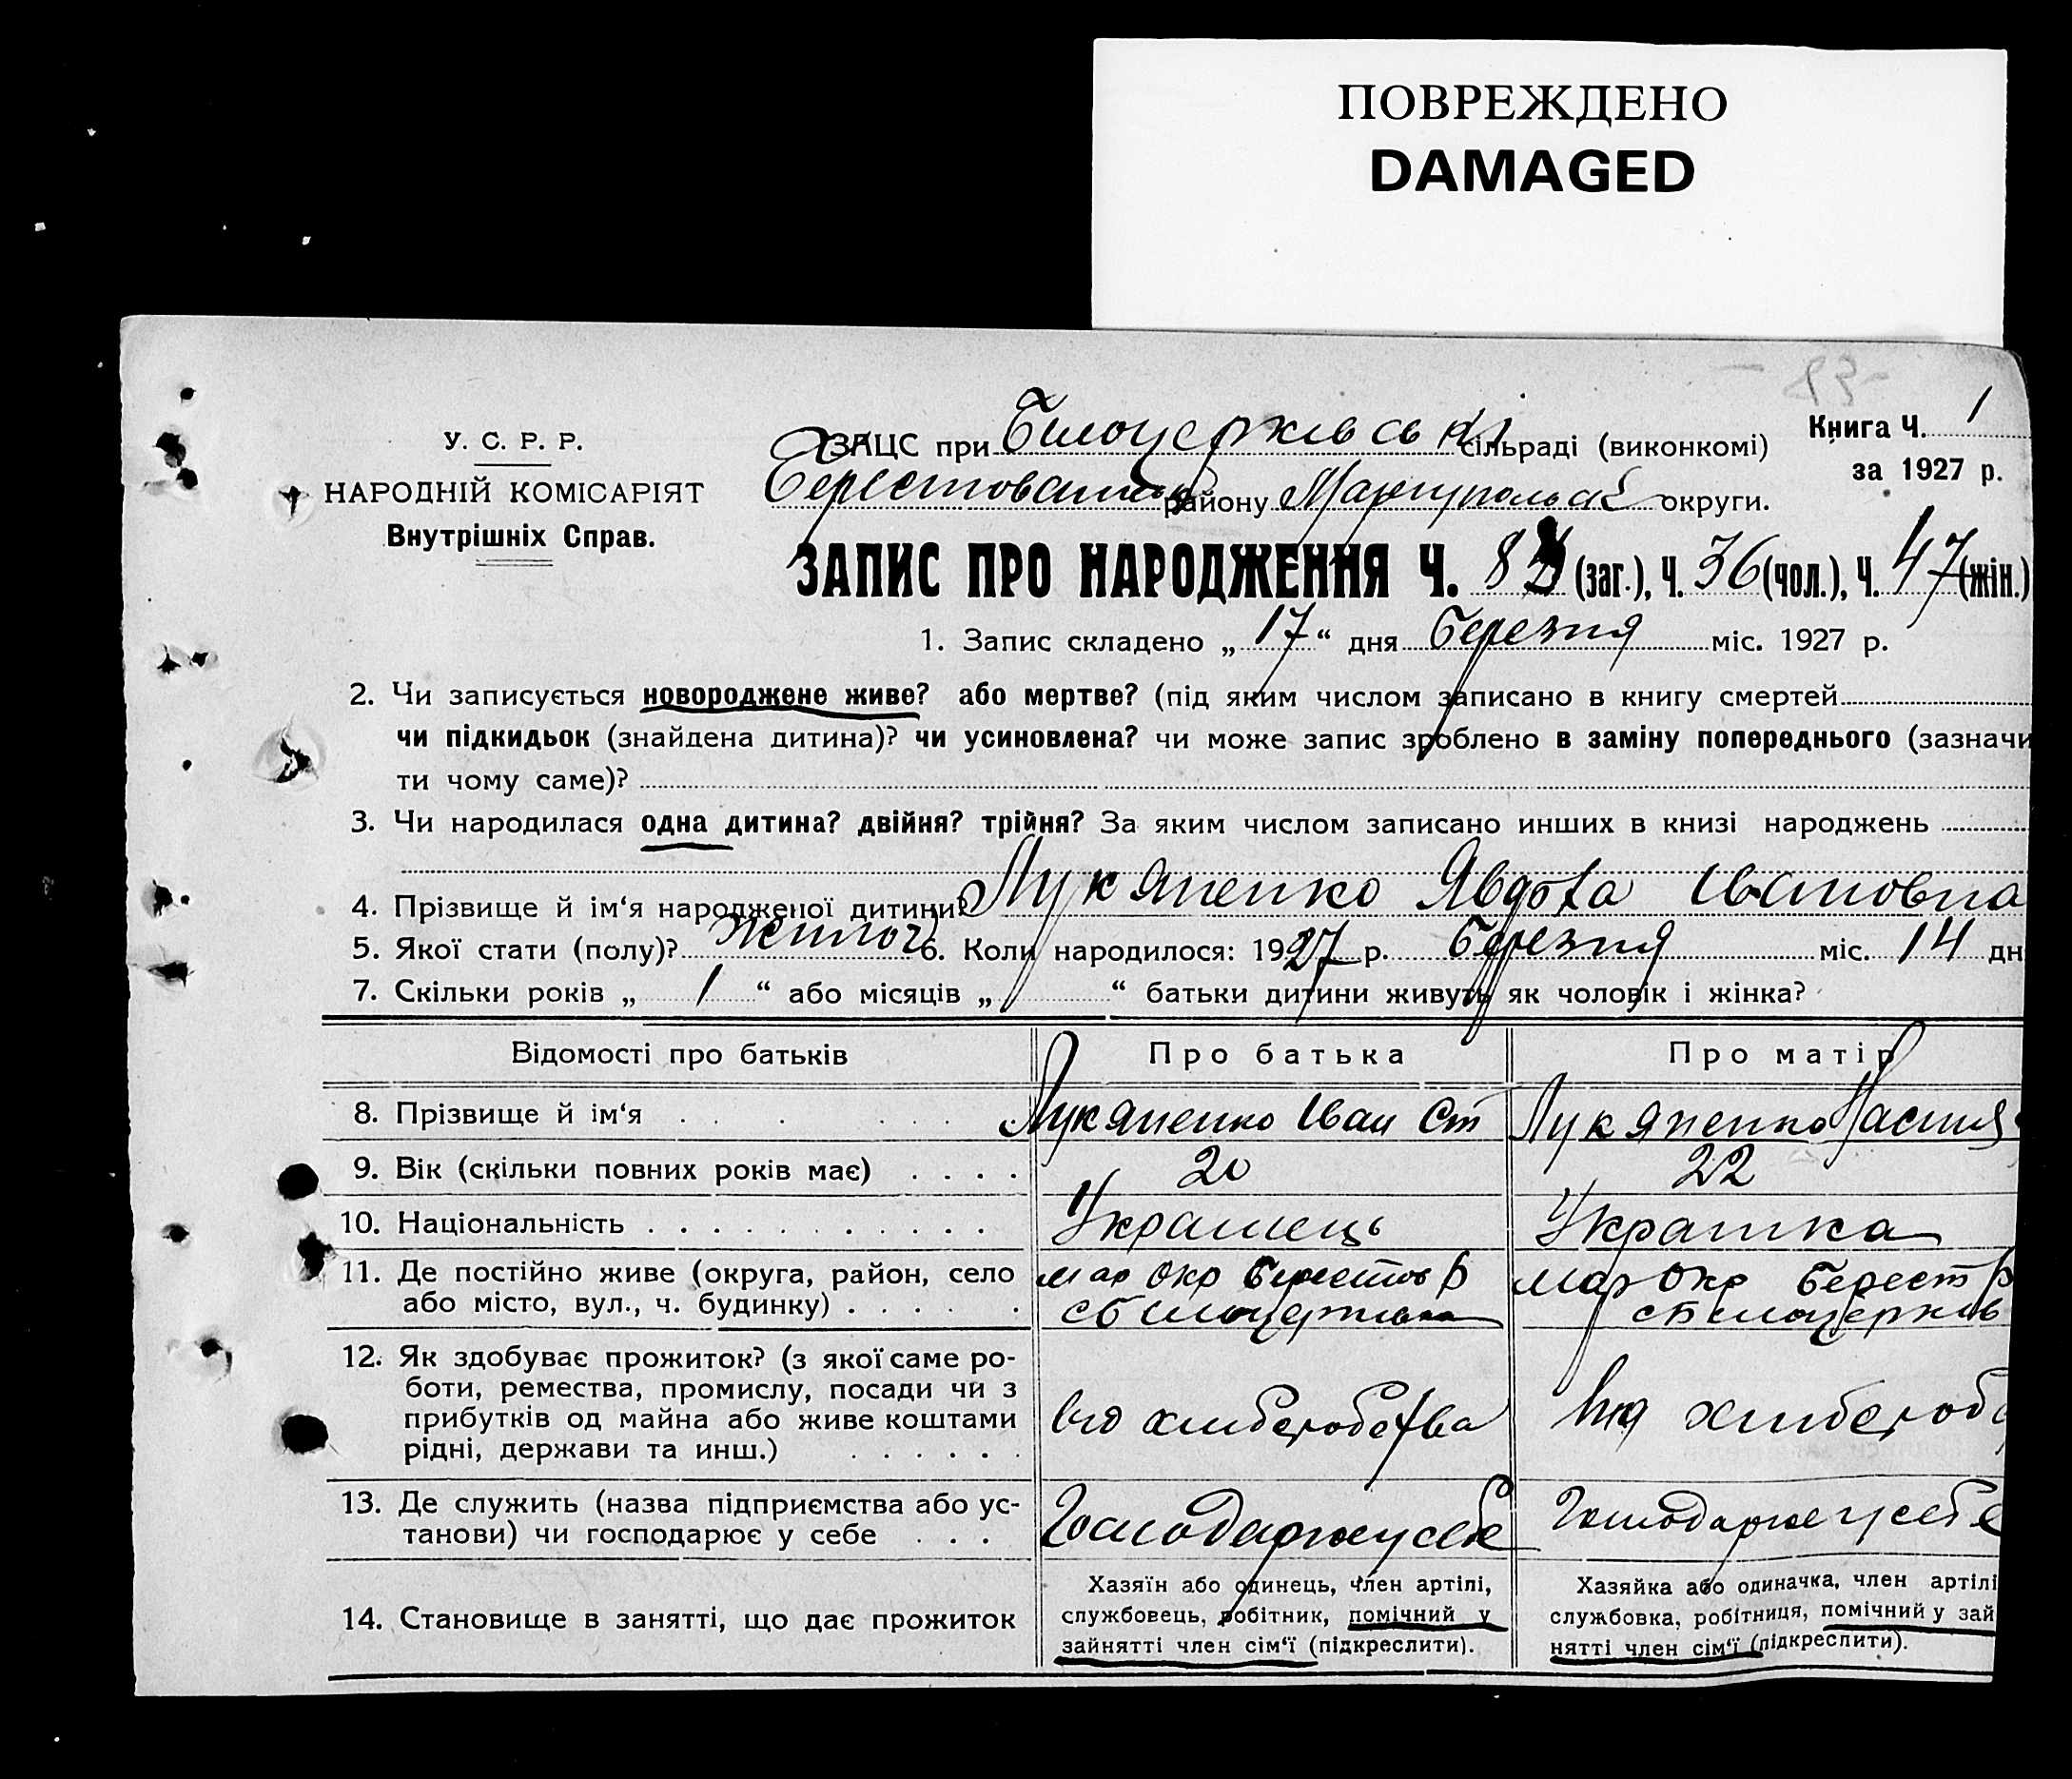 ПОВРЕЖДЕНО
DAMAGED
Книга Ч. 1
за 1927 р.
У. С. Р. Р.
НАРОДНІЙ КОМІСАРІЯТ
Внутрішніх Справ.
ЗАЦС при Білоцерківській сільраді (виконкомі)
району Маріупольськ округи.
ЗАПИС ПРО НАРОДЖЕННЯ Ч. 83 (заг.), Ч. 36 (чол.), Ч. 47 (жін.)
1. Запис складено „ 17 “ дня Березня міс. 1927 р.
2. Чи записується новороджене живе? або мертве? (під яким числом записано в книгу смертей
чи підкидьок (знайдена дитина)? чи усиновлена? чи може запис зроблено в заміну попереднього (зазначи
ти чому саме)?
3. Чи народилася одна дитина? двійня? трійня? За яким числом записано инших в книзі народжень
4. Прізвище й ім‘я народженої дитини? Лукяненко Явдоха Івановна
5. Якої стати (полу)? жіноч 6. Коли народилося: 1927 р. Березня міс. 14 дн
7. Скільки років „ 1 “ або місяців „ “ батьки дитини живуть як чоловік і жінка?
Відомості про батьків Про батька Про матір
8. Прізвище й ім‘я Лукяненко Іван Ст Лукяненко Настя
9. Вік (скільки повних років має) 20 22
10. Національність Українець Українка
11. Де постійно живе (округа, район, село мар окр Берестов р мар окр Берест р
або місто, вул., ч. будинку) с Білоцерківка с Білоцерків
12. Як здобуває прожиток? (з якої саме ро-
боти, ремества, промислу, посади чи з
прибутків од майна або живе коштами від хліберобства від хлібероб
рідні, держави та инш.)
13. Де служить (назва підприємства або ус- Господарює у себе Господарює у себе
танови) чи господарює у себе
14. Становище в занятті, що дає прожиток
Хазяїн або одинець, член артілі,
службовець, робітник, помічний у
зайнятті член сім‘ї (підкреслити).
Хазяйка або одиначка, член артілі
службовка, робітниця, помічний у зай
нятті член сім‘ї (підкреслити).